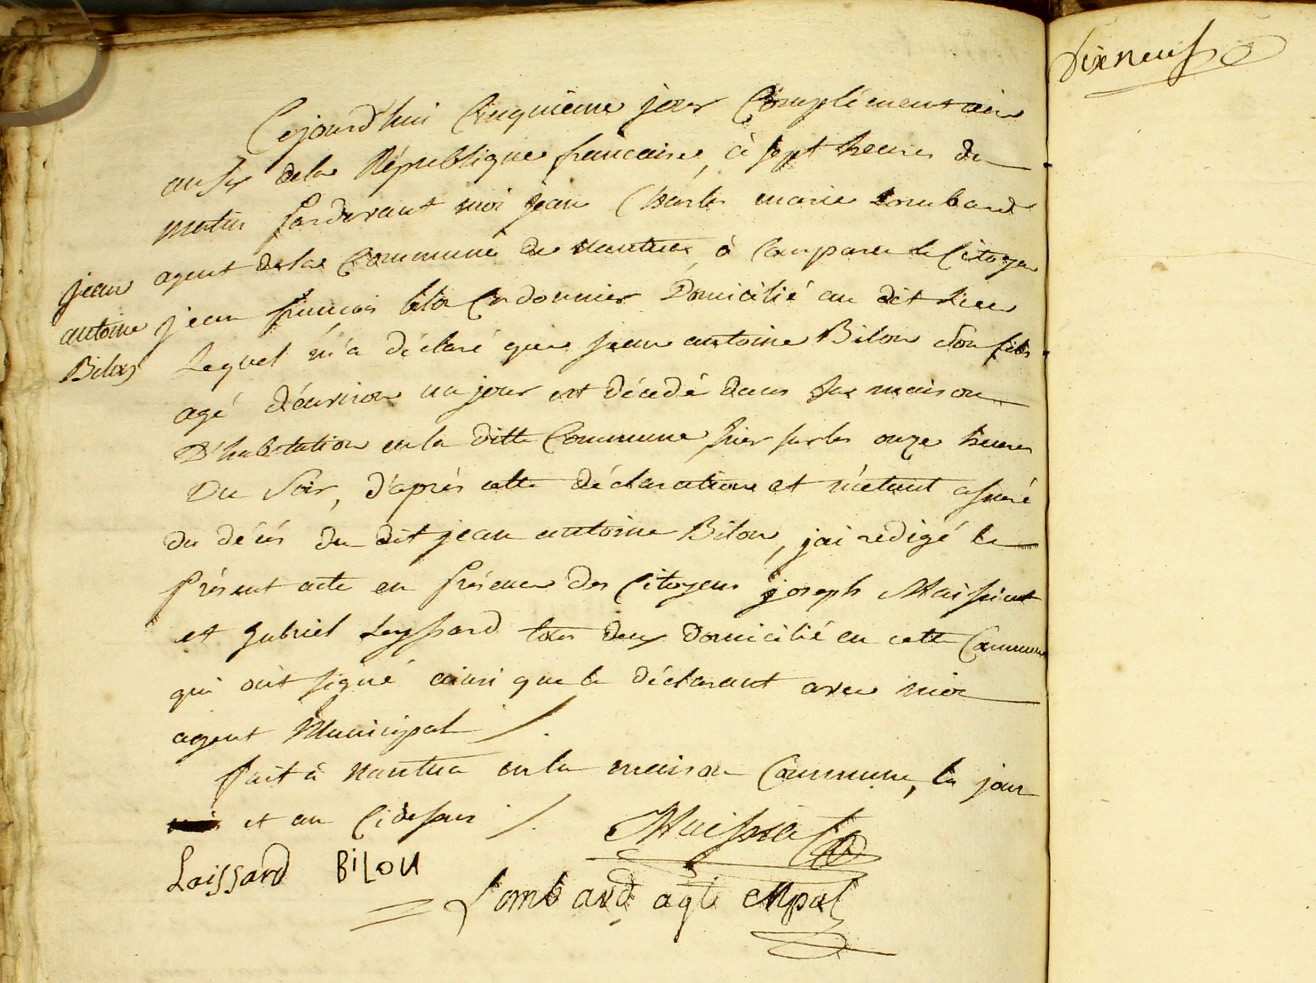 dixneuf
Cejourd'hui Cinquieme jour Complémentaire
an six dela République francaise, à sept heures du
matin pardevant moi jean Charles marie Lombard
agent dela Commune de nantua à Comparu le Citoyen
jean francois Cordonnier Domicilié au dit Lieu
jean
antoine
Bilon
Lequel m'a déclaré que jean antoine Bilon son fils
agé d'environ un jour est décédé dans sa maison
D'habitation en la ditte Commune hier sur les onze heures
Du Soir, d'après cette déclaration et m'etant assuré
du décés du dit jean antoine Bilon, jai redigé le
présent acte en présence des Citoyens joseph Maissiat
et gabriel Leyssard tous deux Domicilié en cette Commune
qui ont signé ainsi que le déclarant avec moi
agent Municipal /.
fait à nantua en la maison Commune, les jour
et an Cidessus /.
Maissiat
Laissard BiLON
Lombard agt Mpal